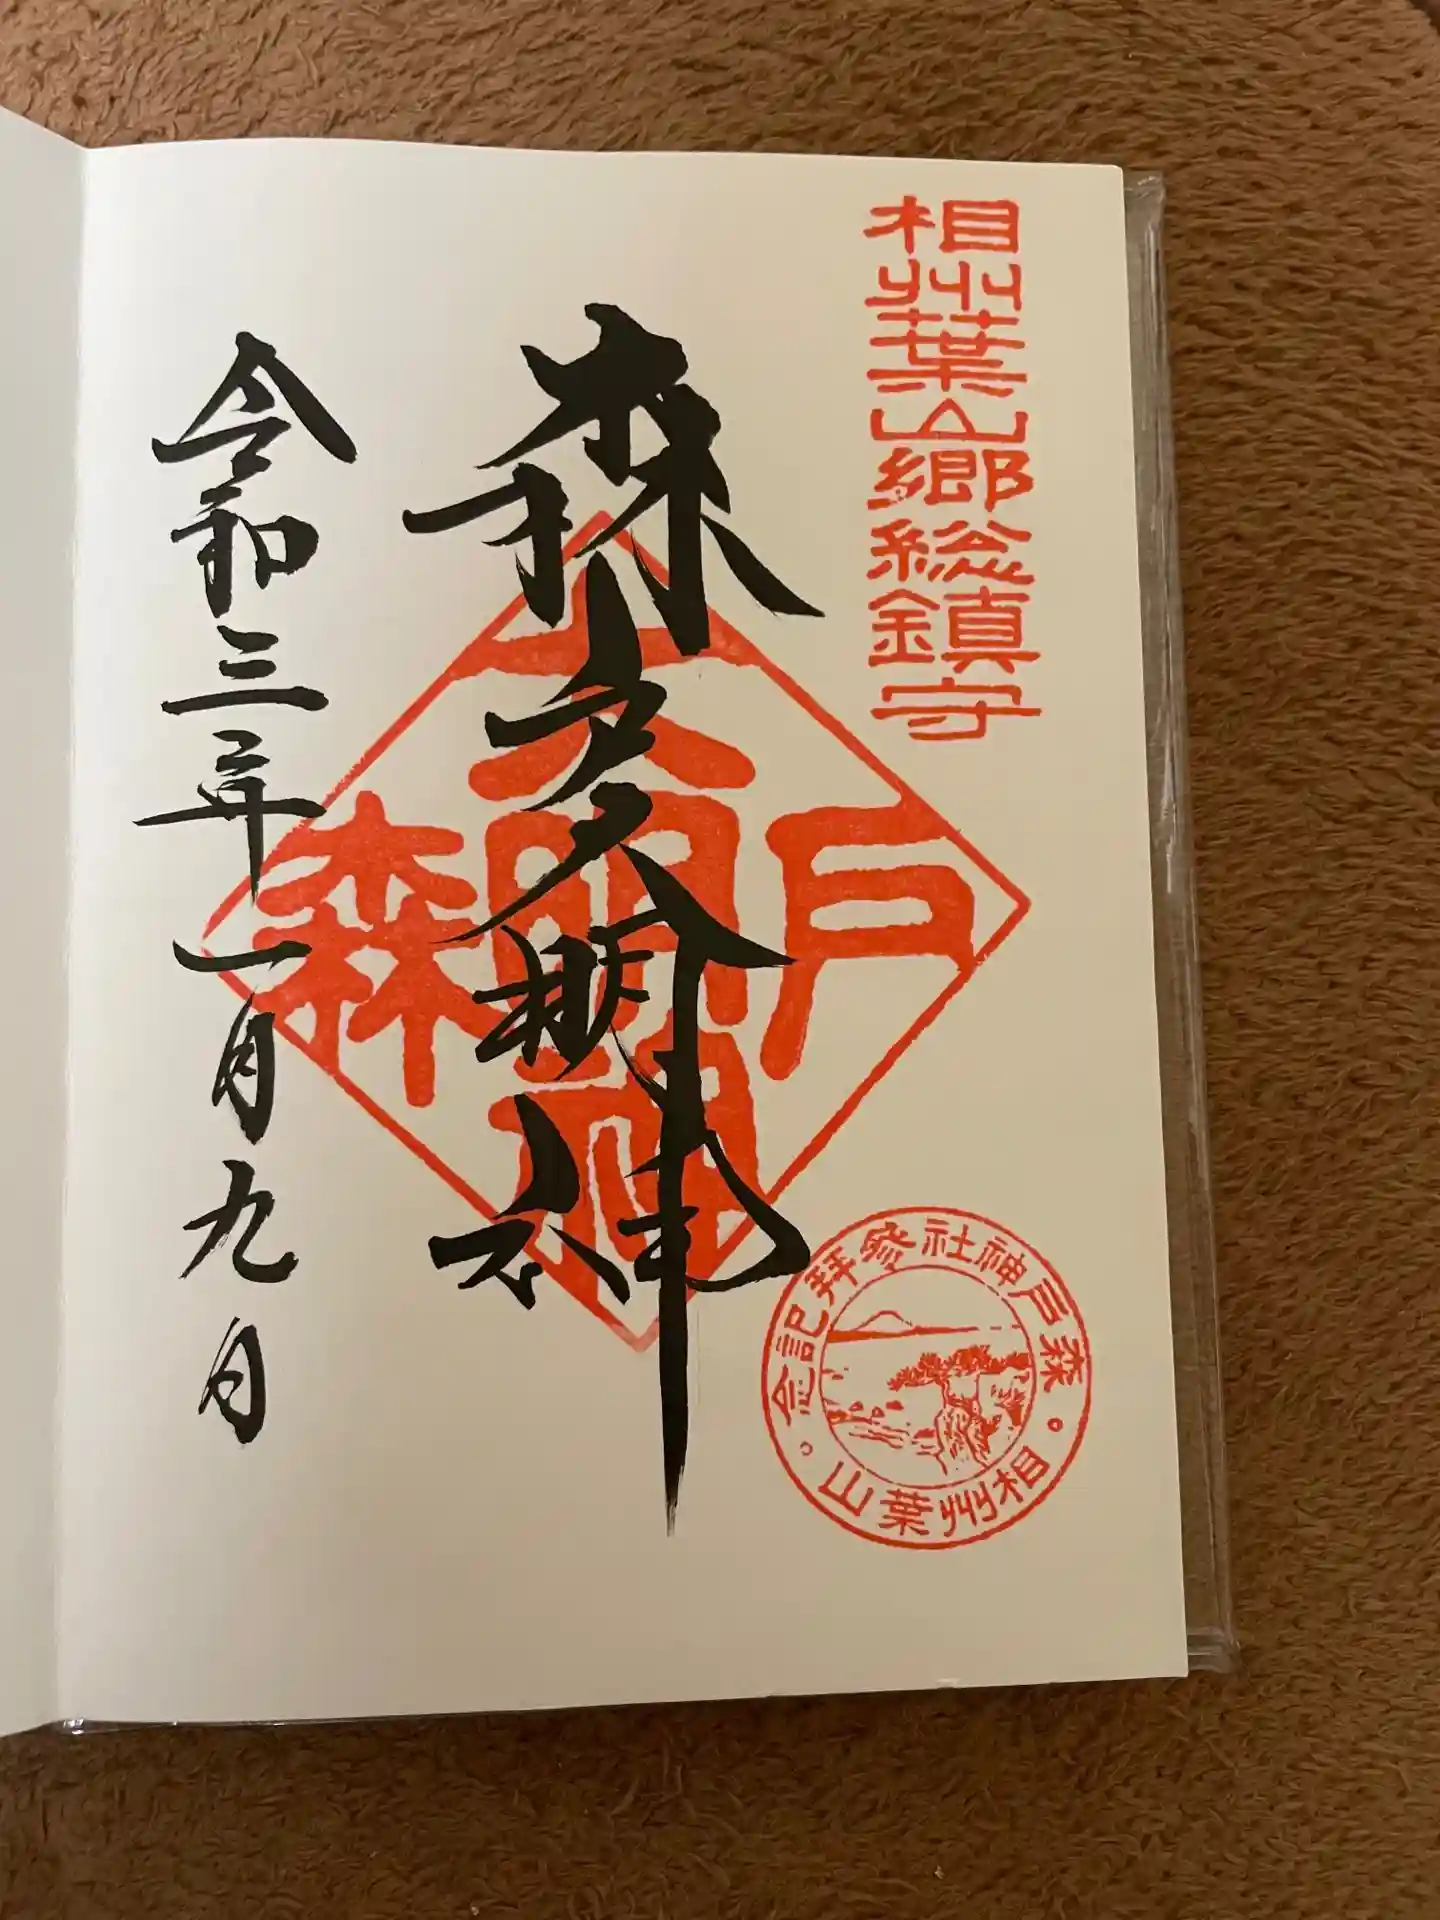 相州葉山郷総鎮守
森戸大明神
令和三年一月九日
森戸大明神
森戸神社参拜記念
相州葉山